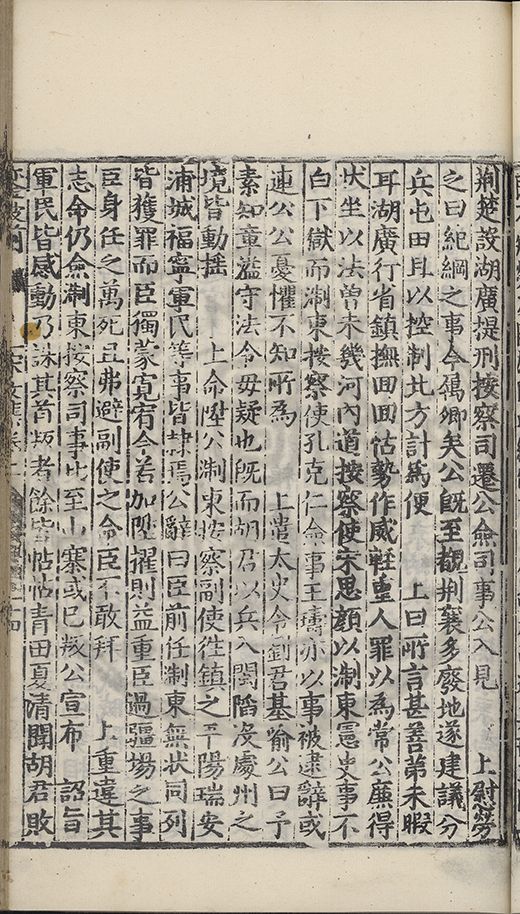 荆楚設湖廣提刑按察司遷公僉司事公入見　上慰勞
之曰紀綱之事今屬卿矣公旣至觀荆襄多廢地遂建議分
兵屯田且以控制北方計爲便　上曰所言甚善第未暇
耳湖廣行省鎮撫囬囬怙勢作威輊重人罪以爲常公廉得
伏坐以法曽未幾河內道按察使宋思顔以淛東憲史事不
白下獄而淛東按察使孔克仁僉事王璹亦以事被逮辭或
連公公憂懼不知所爲　上遣太史令劉君基喻公曰予
素知章溢守法令毋疑也旣而胡君以兵入閩陷沒處州之
境皆動揺　上命陞公淛東按察副使徃鎮之平陽瑞安
浦城福寧軍民等事皆隷焉公辭曰臣前任淛東無状同列
皆獲罪而臣獨蒙寛宥今若加陞擢則益重臣過疆埸之事
臣身任之萬死且弗避副使之命臣不敢拜　上重違其
志命仍僉淛東按察司事比至山寨或巳叛公宣布　詔旨
軍民皆感動乃誅其首叛者餘皆帖帖青田夏清聞胡君敗